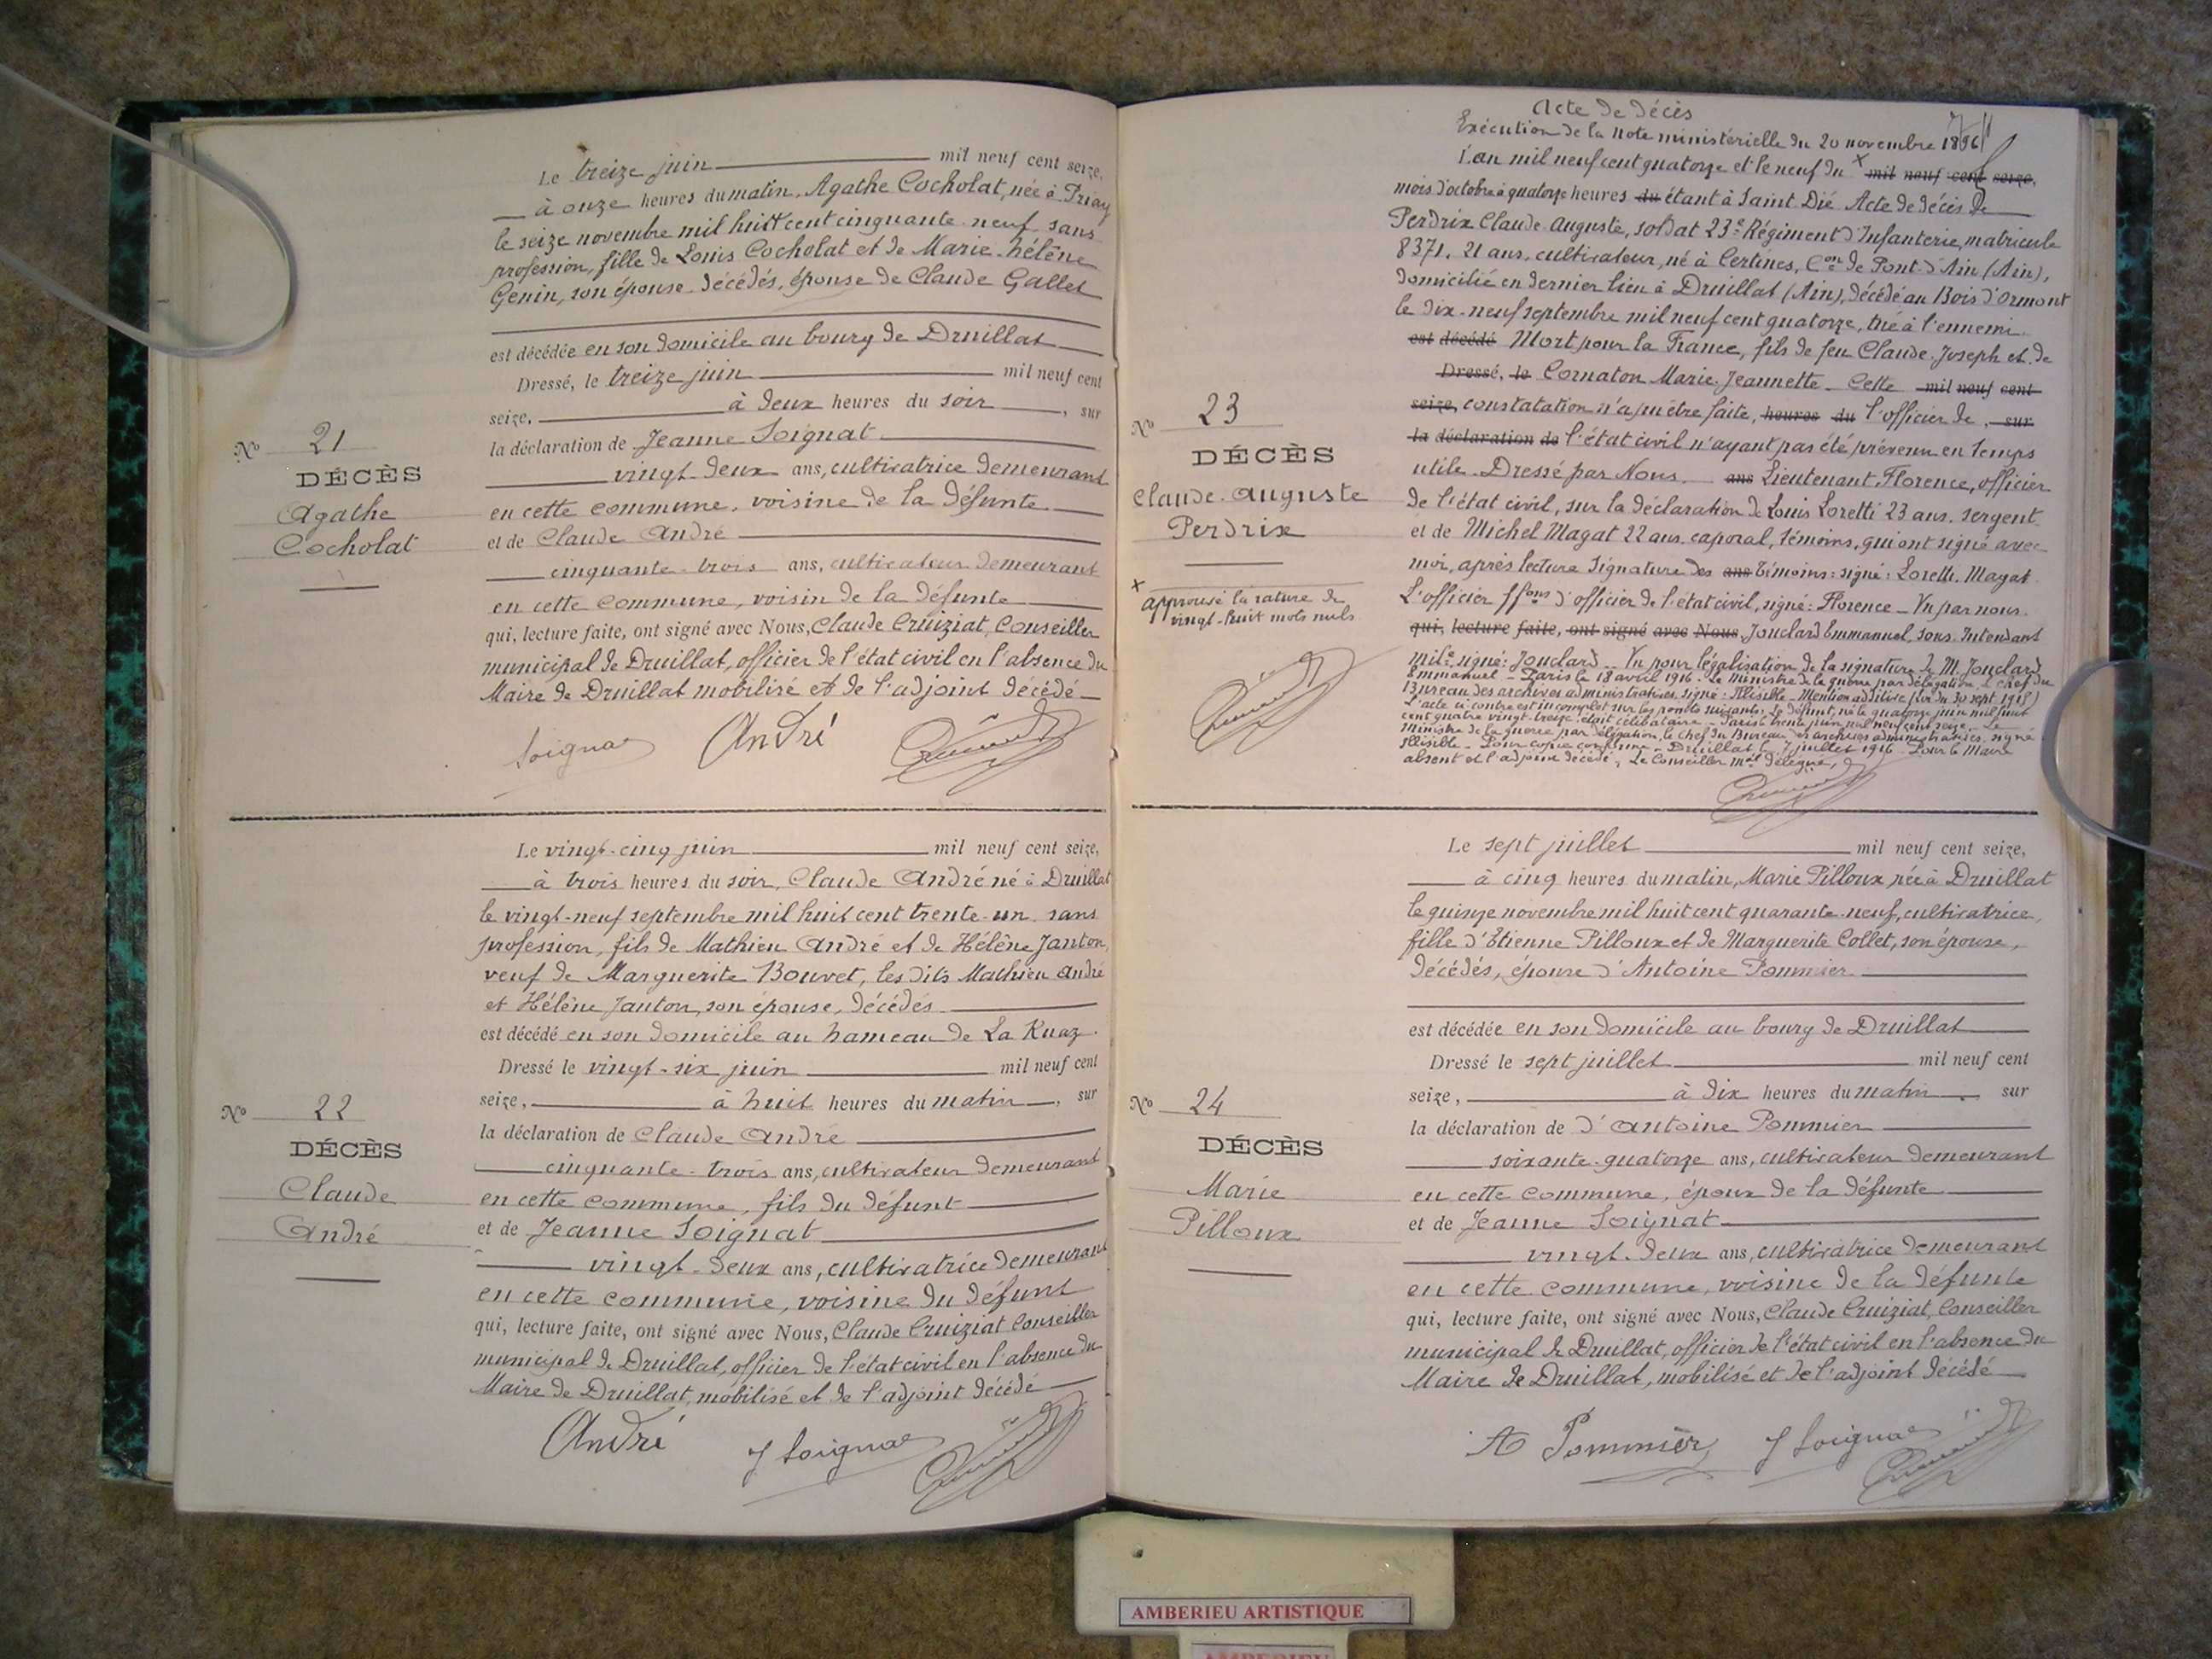 Le treize juin mil neuf cent seize,
à onze heures du matin, Agathe Cocholat, née à Priay
le seize novembre mil huit cent cinquante-neuf sans
profession, fille de Louis Cocholat et de Marie-Hélène
Genin, son épouse décédés, épouse de Claude Gallet
est décédée en son domicile au bourg de Druillat
Dressé, le treize juin mil neuf cent
seize, à deux heures du soir, sur
la déclaration de Jeanne Soignat
vingt-deux ans, cultivatrice demeurant
en cette commune, voisine de la défunte
et de Claude André
cinquante-trois ans, cultivateur demeurant
en cette commune, voisin de la défunte
qui, lecture faite, ont signé avec Nous, Claude Cruiziat, Conseiller
municipal de Druillat, officier de l'état civil en l'absence du
Maire de Druillat mobilisé et de l'adjoint décédé
Soignat André
No 21
DÉCÈS
Agathe
Cocholat
Le vingt-cinq juin mil neuf cent seize,
à trois heures du soir, Claude André né à Druillat
le vingt-neuf septembre mil huit cent trente-un sans
profession, fils de Mathieu André et de Hélène Janton,
veuf de Marguerite Bouvet, les dits Mathieu André
et Hélène Janton, son épouse, décédés
est décédé en son domicile au hameau de La Ruaz.
Dressé le vingt-six juin mil neuf cent
seize, à huit heures du matin, sur
la déclaration de Claude André
cinquante-trois ans, cultivateur demeurant
en cette commune, fils du défunt
et de Jeanne Soignat
vingt-deux ans, cultivatrice demeurant
en cette commune, voisine du défunt
qui, lecture faite, ont signé avec Nous, Claude Cruiziat Conseiller
municipal de Druillat, officier de l'état civil en l'absence du
Maire de Druillat, mobilisé et de l'adjoint décédé
André J Soignat
No 22
DÉCÈS
Claude
André
Acte de décès
Exécution de la Note ministérielle du 20 novembre
L'an mil neuf cent quatorze et le neuf du x mil neuf cent seize,
mois d'octobre à quatorze heures du étant à Saint Dié Acte de décès de
Perdrix Claude Auguste, soldat 23e Régiment d'Infanterie, matricule
8371, 21 ans, cultivateur, né à Certines, Con de Pont-d'Ain (Ain),
domicilié en dernier lieu à Druillat (Ain), décédé au Bois d'Ormont
le dix-neuf septembre mil neuf cent quatorze, tué à l'ennemi
est décédé Mort pour la France, fils de feu Claude-Joseph et de
Dressé, le Cornaton Marie Jeannette - Cette mil neuf cent
seize, constatation n'a pu être faite, heures du l'officier de, sur
la déclaration de l'état civil n'ayant pas été prévenu en temps
utile. Dressé par Nous. ans Lieutenant Florence, officier
de l'état civil, sur la déclaration de Louis Loretti 23 ans, sergent
et de Michel Magat 22 ans, caporal, témoins, qui ont signé avec
moi, après lecture Signature des ans témoins: signé: Loretti. Magat
L'officier ffons d'officier de l'état civil, signé: Florence - Vu par nous.
qui, lecture faite, ont signé avec Nous, Jouclard Emmanuel, sous. Intendant
Mil.re signé: Jouclard - Vu pour légalisation de la signature de M. Jouclard
Emmanuel - Paris le 18 avril 1916 - Le ministre de la guerre par délégation le chef du
Bureau des archives administratives. signé: Illisible - Mention additive (Loi du 30 sept 1915)
L'acte ci-contre est incomplet sur les points suivants: Le défunt, né le quatorze juin mil huit
cent quatre vingt-treize, était célibataire - Paris le trente juin mil neuf cent seize - Le
ministre de la guerre par délégation, le chef du Bureau des archives administratives, signé
Illisible - Pour copie conforme - Druillat le 7 juillet 1916 Pour le Maire
absent et l'adjoint décédé, Le Conseiller mal délégué,
No 23
DÉCÈS
Claude-Auguste
Perdrix
x
approuvé la rature de
vingt-huit mots nuls
Le sept juillet mil neuf cent seize,
à cinq heures du matin, Marie Pilloux née à Druillat
le quinze novembre mil huit cent quarante-neuf, cultivatrice,
fille d'Etienne Pilloux et de Marguerite Collet, son épouse,
décédés, épouse d'Antoine Pommier
est décédée en son domicile au bourg de Druillat
Dressé le sept juillet mil neuf cent
seize, à dix heures du matin, sur
la déclaration de d'Antoine Pommier
soixante-quatorze ans, cultivateur demeurant
en cette commune, époux de la défunte
et de Jeanne Soignat
vingt-deux ans, cultivatrice demeurant
en cette commune, voisine de la défunte
qui, lecture faite, ont signé avec Nous, Claude Cruiziat, Conseiller
municipal de Druillat, officier de l'état civil en l'absence du
Maire de Druillat, mobilisé et de l'adjoint décédé
A Pommier J Soignat
No 24
DÉCÈS
Marie
Pilloux
AMBERIEU ARTISTIQUE
AMBERIEU